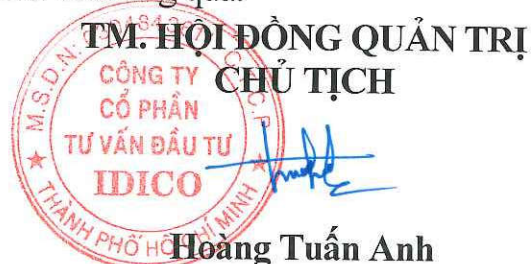 TM. HỘI ĐỒNG QUẢN TRỊ
CHỦ TỊCH
CÔNG TY
CỔ PHẦN
TƯ VẤN ĐẦU TƯ
IDICO
THÀNH PHỐ HỒ CHÍ MINH
Hoàng Tuấn Anh